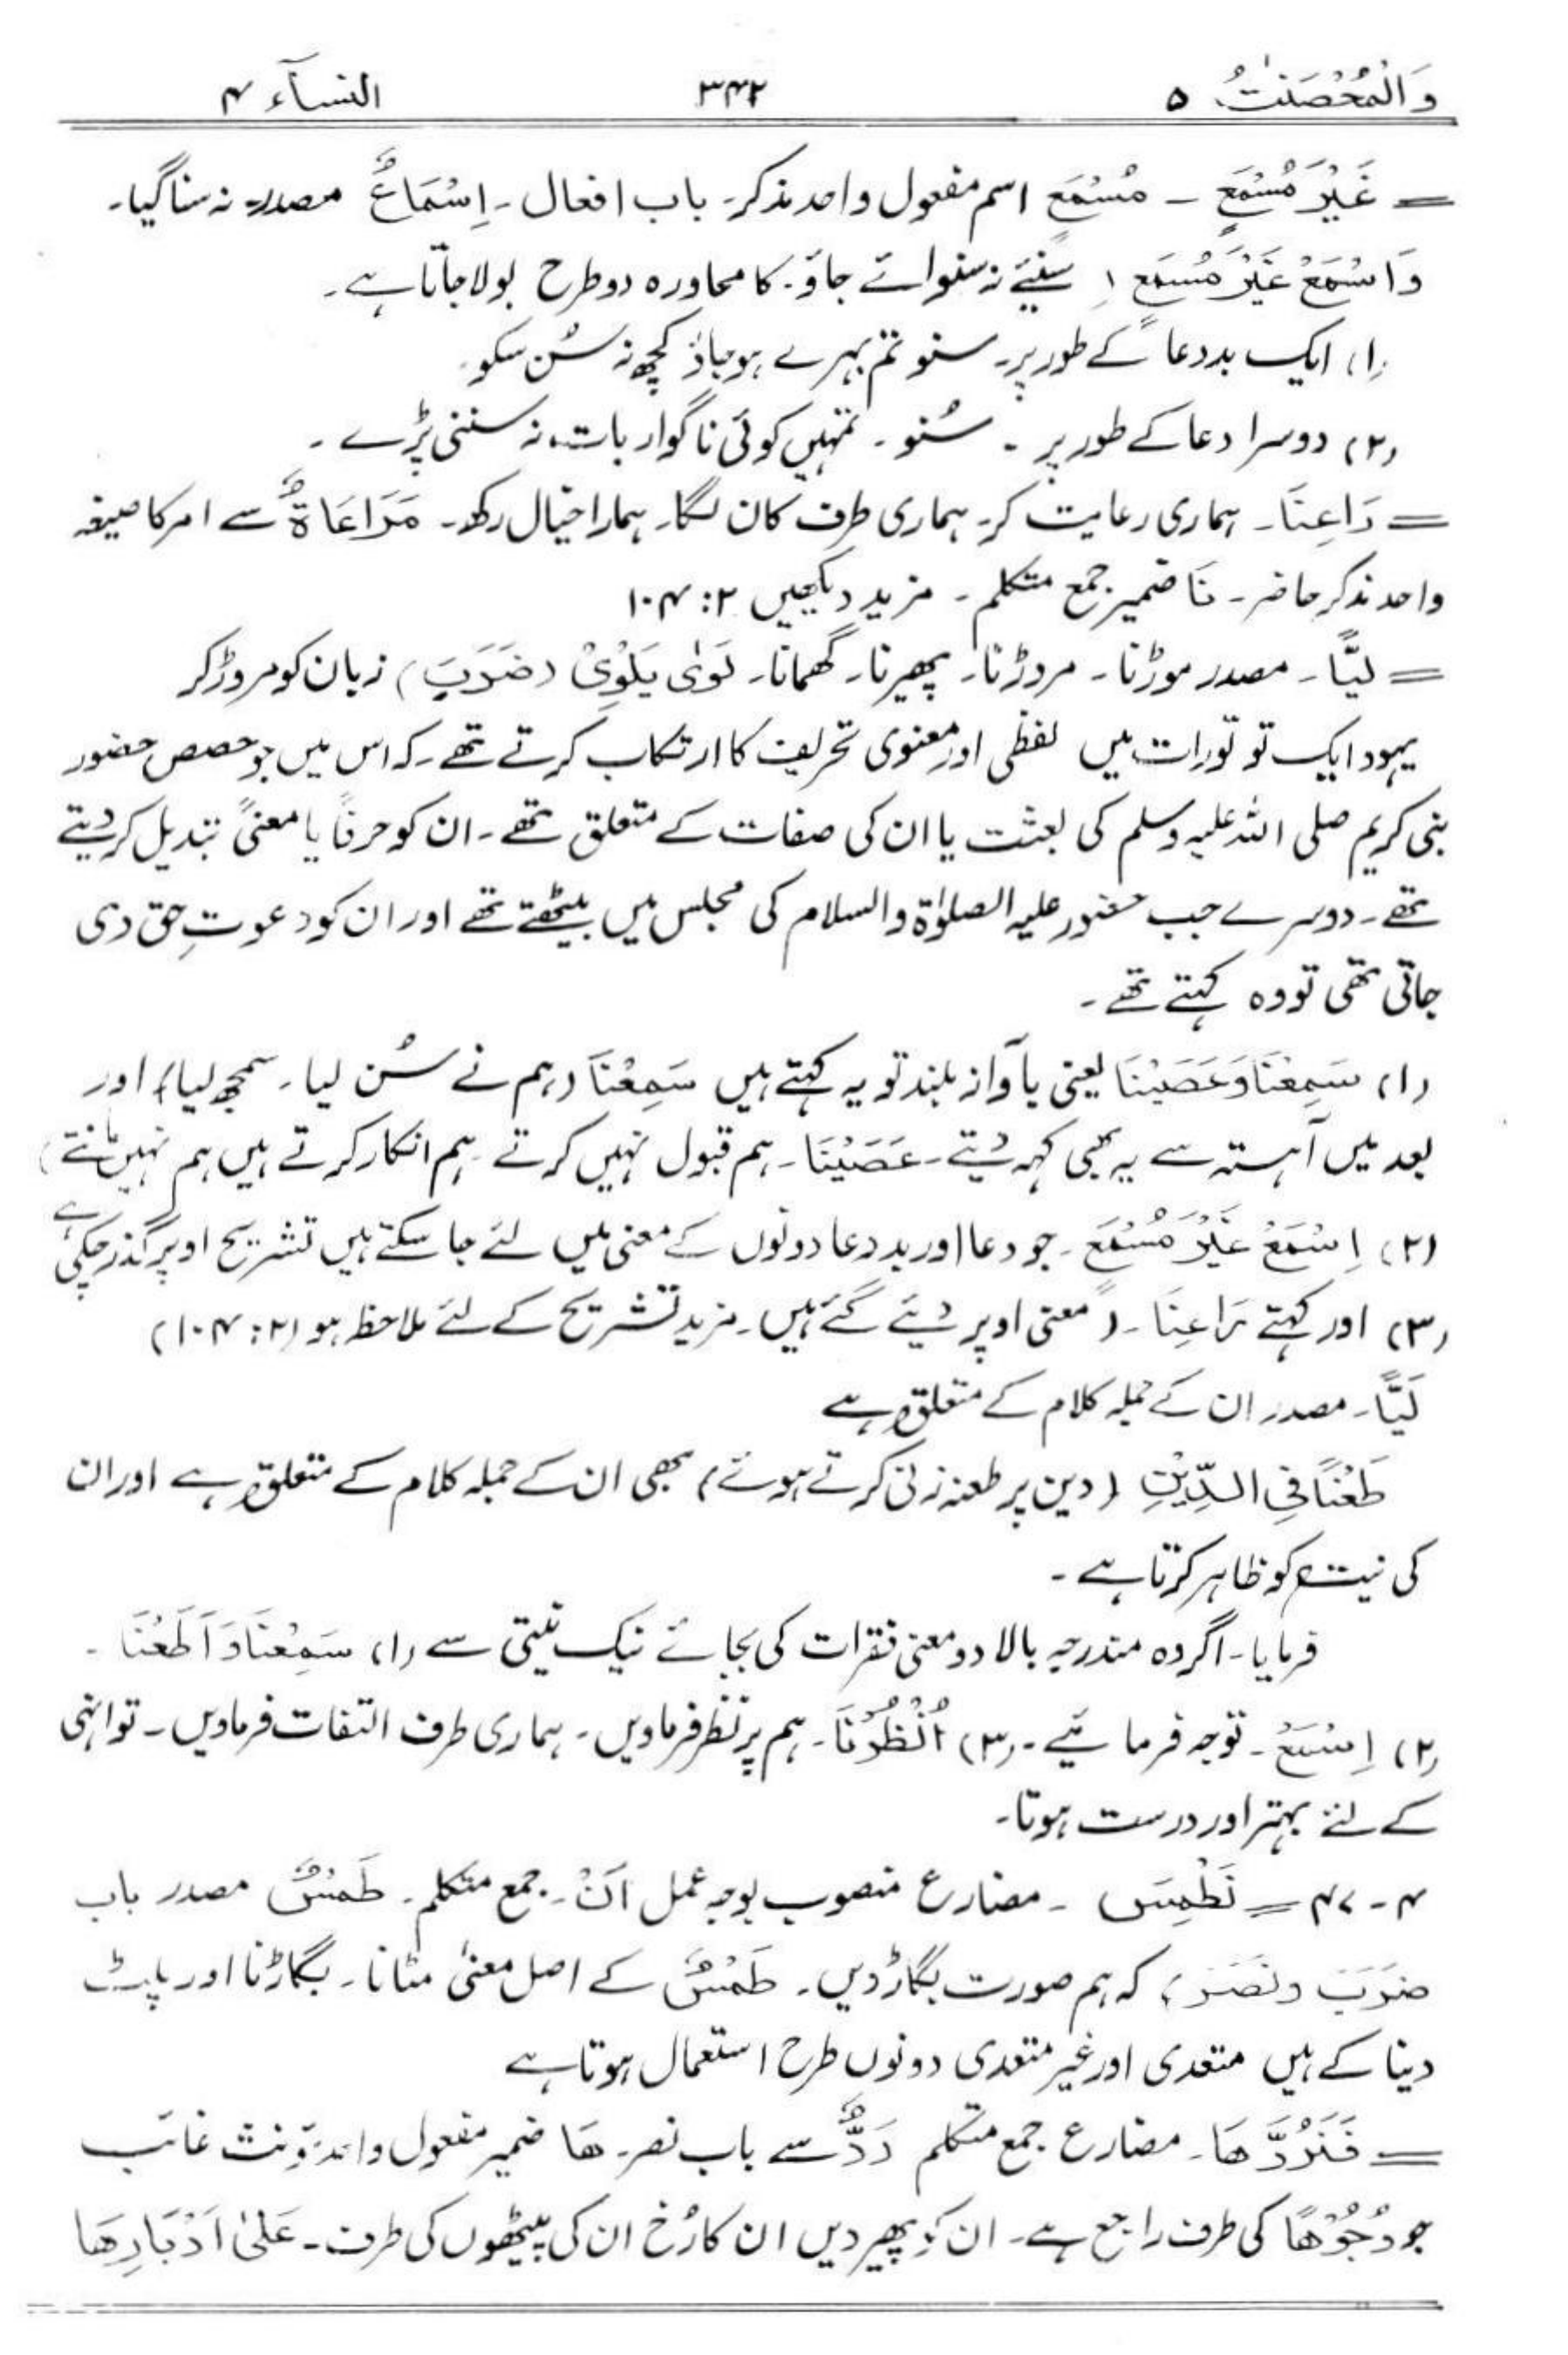 وَالْمُحْصَنٰتُ ۵ ۳۴۲ النسآء ۴
= غَيْرَ مُسْمَعٍ ـ مُسْمَعٍ اسم مفعول واحد مذکر۔ باب افعال۔ اِسْمَاعٌ مصدر۔ نہ سنا گیا۔
وَاسْمَعْ غَيْرَ مُسْمَعٍ ۔ سنیئے نہ سنوائے جاؤ۔ کا محاورہ دو طرح بولا جاتا ہے۔
(۱) ایک بددعا کے طور پر۔ سنو تم بہرے ہو جاؤ کچھ نہ سُن سکو۔
(۲) دوسرا دعا کے طور پر ۔ سُنو ۔ تمہیں کوئی ناگوار بات نہ سننی پڑے ۔
= رَاعِنَا۔ ہماری رعایت کر۔ ہماری طرف کان لگا۔ ہمارا خیال رکھ۔ مَرَاعَاةٌ سے امر کا صیغہ
واحد مذکر حاضر۔ نَا ضمیر جمع متکلم ۔ مزید دیکھیں ۲: ۱۰۴
= لَيًّا۔ مصدر موڑنا۔ مروڑنا۔ پھیرنا۔ گھمانا۔ لَوٰى يَلْوِىْ (ضَرَبَ) زبان کو مروڑ کر
یہود ایک تو تورات میں لفظی اور معنوی تحریف کا ارتکاب کرتے تھے۔ کہ اس میں جو حصص حضور
نبی کریم صلی اللہ علیہ وسلم کی بعثت یا ان کی صفات کے متعلق تھے۔ ان کو حرفاً یا معنیً تبدیل کر دیتے
تھے۔ دوسرے جب حضور علیہ الصلوٰۃ والسلام کی مجلس میں بیٹھتے تھے اور ان کو دعوتِ حق دی
جاتی تھی تو وہ کہتے تھے ۔
(۱) سَمِعْنَا وَعَصَيْنَا یعنی بآواز بلند تو یہ کہتے ہیں سَمِعْنَا (ہم نے سُن لیا۔ سمجھ لیا) اور
بعد میں آہستہ سے یہ بھی کہہ دیتے۔ عَصَيْنَا۔ ہم قبول نہیں کرتے ہم انکار کرتے ہیں ہم نہیں مانتے)
(۲) اِسْمَعْ غَيْرَ مُسْمَعٍ۔ جو دعا اور بددعا دونوں کے معنی میں لئے جا سکتے ہیں تشریح اوپر گذر چکی ہے
(۳) اور کہتے رَاعِنَا ۔ (معنی اوپر دیئے گئے ہیں۔ مزید تشریح کے لئے ملاحظہ ہو (۲: ۱۰۴)
لَيًّا۔ مصدر ان کے جملہ کلام کے متعلق ہے
طَعْنًا فِى الدِّيْنِ (دین پر طعنہ زنی کرتے ہوئے) بھی ان کے جملہ کلام کے متعلق ہے اور ان
کی نیت کو ظاہر کرتا ہے ۔
فرمایا۔ اگر وہ مندرجہ بالا دو معنی فقرات کی بجائے نیک نیتی سے (۱) سَمِعْنَا وَاَطَعْنَا ۔
(۲) اِسْمَعْ۔ توجہ فرمائیے ۔ (۳) اُنْظُرْنَا۔ ہم پر نظر فرماویں۔ ہماری طرف التفات فرماویں۔ تو انہی
کے لئے بہتر اور درست ہوتا۔
۴ - ۴۷ = نَطْمِسَ ۔ مضارع منصوب بوجہ عمل اَنْ۔ جمع متکلم۔ طَمْسٌ مصدر باب
ضَرَبَ ونَصَرَ) کہ ہم صورت بگاڑ دیں۔ طَمْسٌ کے اصل معنیٰ مٹانا۔ بگاڑنا اور پلٹ
دینا کے ہیں متعدی اور غیر متعدی دونوں طرح استعمال ہوتا ہے
= فَنَرُدَّهَا۔ مضارع جمع متکلم رَدٌّ سے باب نصر۔ ھَا ضمیر مفعول واحد مؤنث غائب
جو وُجُوْهًا کی طرف راجع ہے۔ ان کو پھیر دیں ان کا رُخ ان کی پیٹھوں کی طرف۔ عَلٰى اَدْبَارِهَا